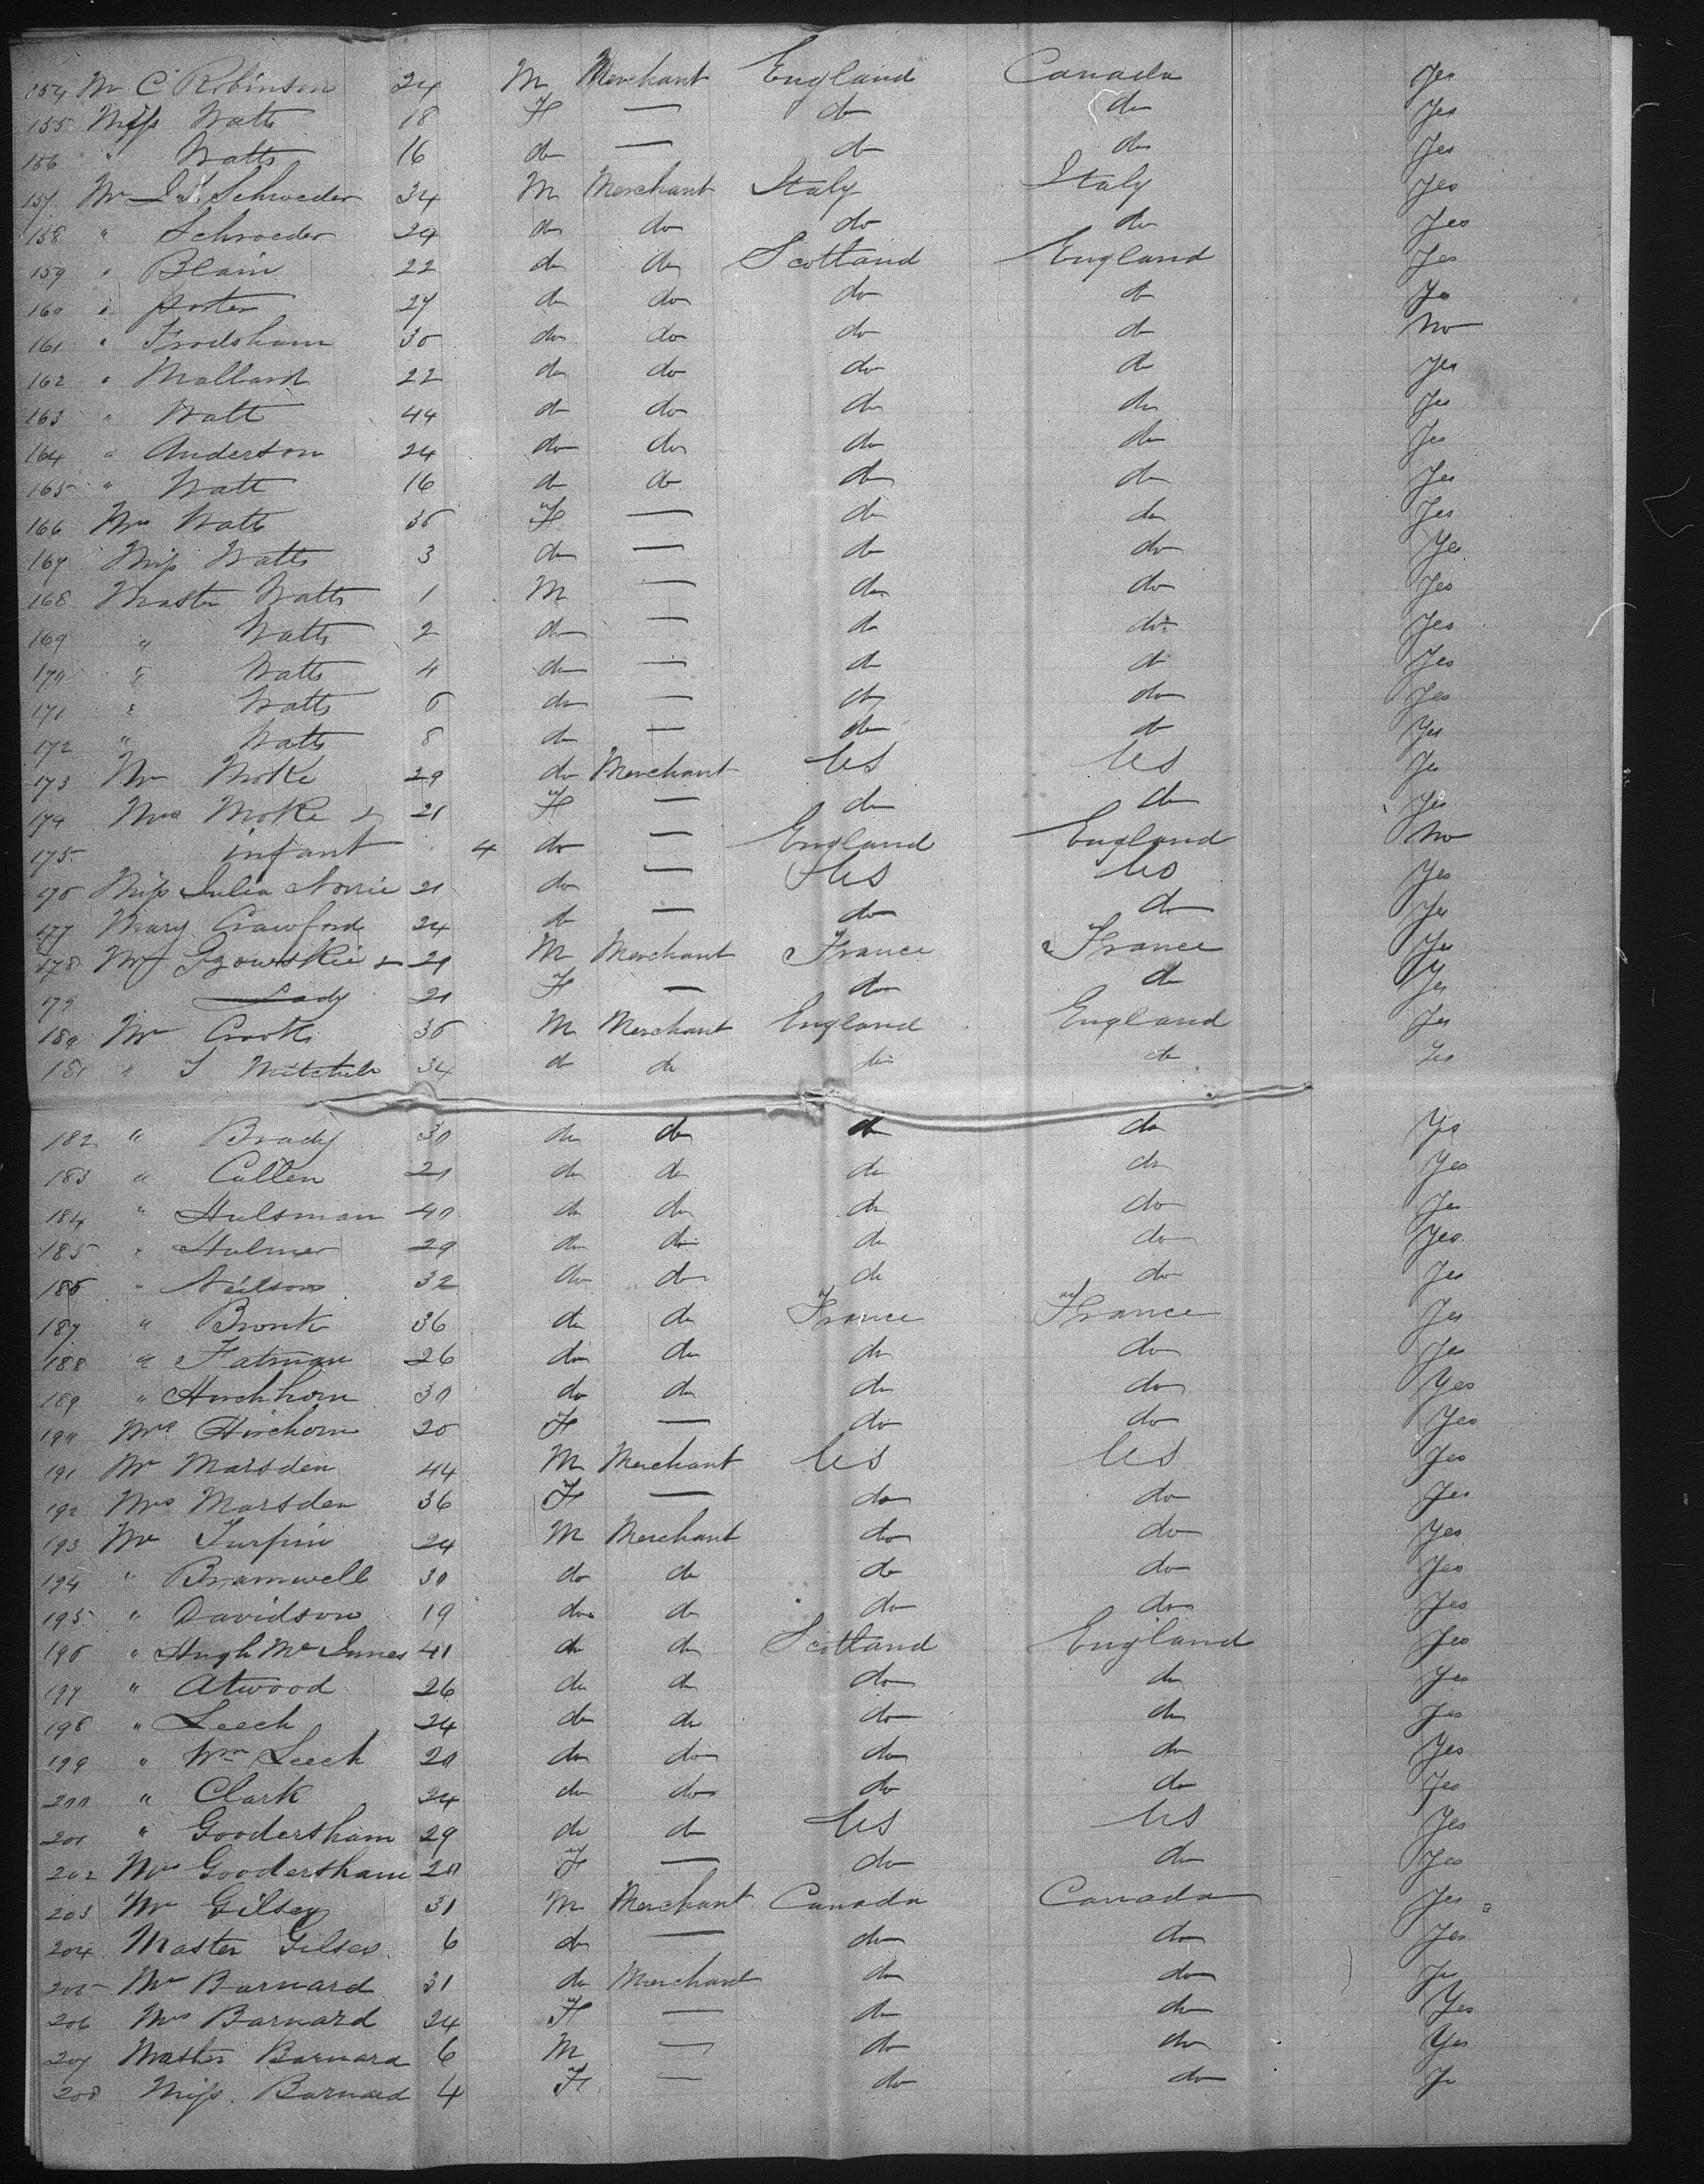 154 Mr C Robinson 24 M Merchant England Canada Yes
155 Miss Watts 18 F — do do Yes
156 " Watts 16 do — do do Yes
157 Mr Schroeder 34 M Merchant Italy Italy Yes
158 " Schroeder 24 do do do do Yes
159 " Blain 22 do do Scotland England Yes
160 " porter 27 do do do do Yes
161 " Frodsham 30 do do do do No
162 " Mallard 22 do do do do Yes
163 " Watt 44 do do do do Yes
164 " Anderson 24 do do do do Yes
165 " Watt 16 do do do do Yes
166 Mrs Watts 35 F — do do Yes
167 Miss Watts 3 do — do do Yes
168 Master Watts 1 M — do do Yes
169 " Watts 2 do — do do Yes
170 " Watts 4 do — do do Yes
171 " Watts 6 do — do do Yes
172 " Watts 8 do — do do Yes
173 Mr Moke 29 do Merchant US US Yes
174 Mrs Moke & 21 F — do do Yes
175 infant 4 do — England England No
176 Miss Julia Norrie 21 do — US US Yes
177 Mary Crawford 24 do — do do Yes
178 Mr Gzowskie & 21 M Merchant France France Yes
179 Lady 21 F — do do Yes
180 Mr Crooks 35 M Merchant England England Yes
181 " J Mitchell 34 do do do do Yes
182 " Brady 30 do do do do Yes
183 " Cullen 21 do do do do Yes
184 " Hulsman 40 do do do do Yes
185 " Hulmer 29 do do do do Yes
186 " Neilson 32 do do do do Yes
187 " Bronk 36 do do France France Yes
188 " Fatman 26 do do do do Yes
189 " Hirchhorn 30 do do do do Yes
190 Mrs Hirchorn 20 F — do do Yes
191 Mr Marsden 44 M Merchant US US Yes
192 Mrs Marsden 36 F — do do Yes
193 Mr Turpin 24 M Merchant do do Yes
194 " Bramwell 30 do do do do Yes
195 " Davidson 19 do do do do Yes
196 " Hugh McInnes 41 do do Scotland England Yes
197 " Atwood 26 do do do do Yes
198 " Leech 24 do do do do Yes
199 " Wm Leech 20 do do do do Yes
200 " Clark 24 do do do do Yes
201 " Goodersham 29 do do US US Yes
202 Mrs Goodersham 20 F — do do Yes
203 Mr Gilsey 31 M Merchant Canada Canada Yes
204 Master Gilsey 6 do — do do Yes
205 Mr Barnard 31 do Merchant do do Yes
206 Mrs Barnard 24 F — do do Yes
207 Master Barnard 6 M — do do Yes
208 Miss Barnard 4 F — do do Yes